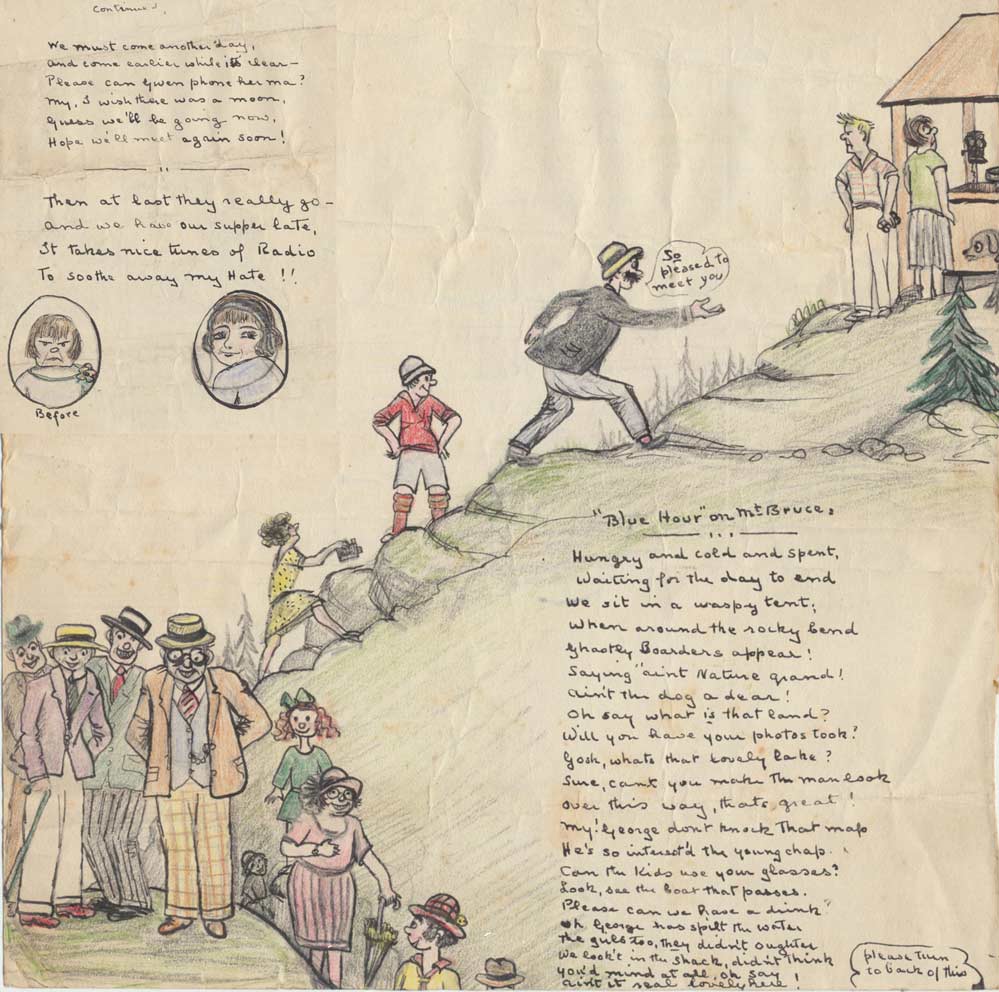 continued.
We must come another day,
and come earlier while it's clear —
Please can Gwen phone her ma?
My, I wish there was a moon,
Guess we'll be going now,
Hope we'll meet again soon!
Then at last they really go —
and we have our supper late,
It takes nice tunes of Radio
To soothe away my Hate !!
Before
So
pleased to
meet you
"Blue Hour" on Mt Bruce.
Hungry and cold and spent,
Waiting for the day to end
We sit in a waspy tent;
When around the rocky bend
Ghastly Boarders appear!
Saying "aint Nature grand!
Ain't the dog a dear!
Oh say what is that land?
Will you have your photos took?
Gosh, whats that lovely lake?
Sure, cant you make the man look
over this way, thats great!
My! George dont knock That map
He's so interest'd the young chap.
Can the Kids use your glasses?
Look, see the boat that passes.
Please can we have a drink?
oh George has spilt the water
the guls too, they didn't oughter
We look't in the shack, didn't think
you'd mind at all, oh say
aint it real lovely here!
please Turn
to back of this